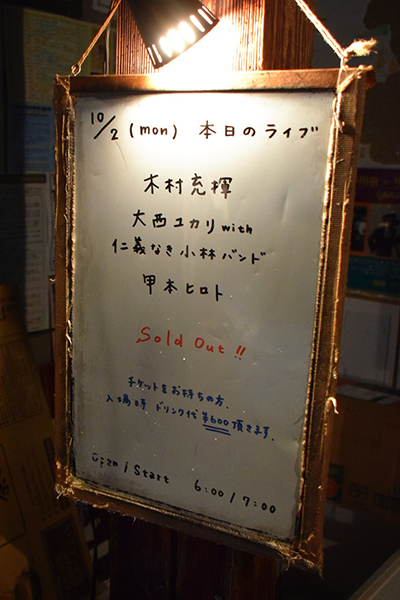 10/2 (mon) 本日のライブ
木村充揮
大西ユカリ with
仁義なき小林バンド
甲本ヒロト
Sold Out !!
チケットをお持ちの方、
入場時 ドリンク代 ¥600 頂きます.
open / Start 6:00 / 7:00